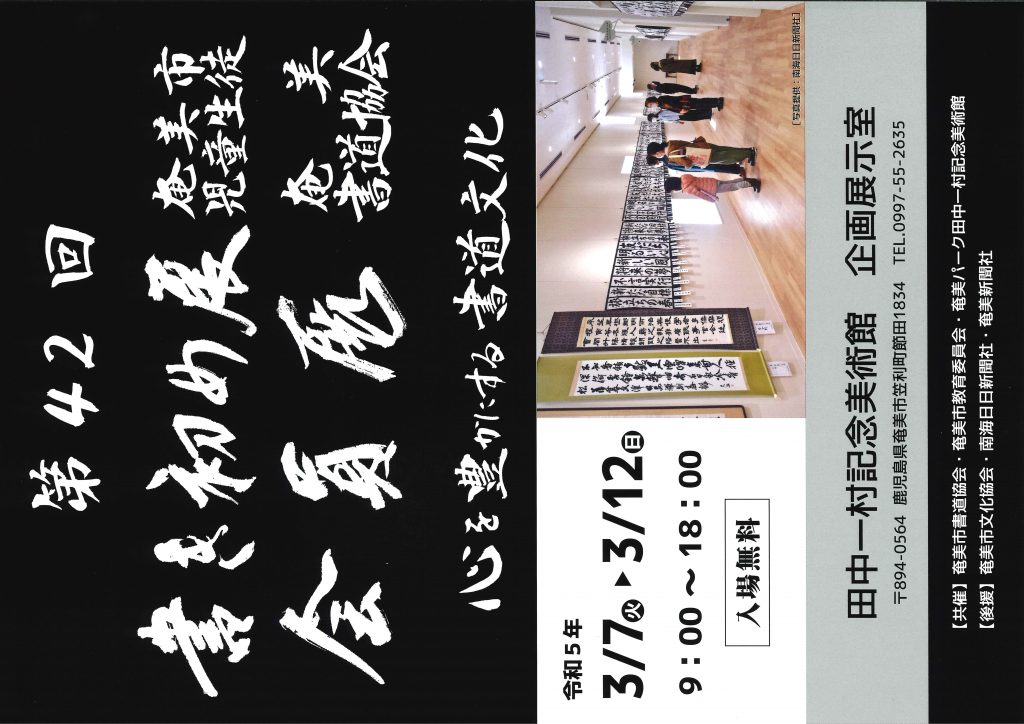 第42回
奄美市
児童生徒
書き初め展
奄美
書道協会
会員展
心を豊かにする書道文化
[写真提供：南海日日新聞社]
令和5年
3/7火▶3/12日
9：00～18：00
入場無料
田中一村記念美術館 企画展示室
〒894-0564 鹿児島県奄美市笠利町節田1834 TEL.0997-55-2635
【共催】奄美市書道協会・奄美市教育委員会・奄美パーク田中一村記念美術館
【後援】奄美市文化協会・南海日日新聞社 奄美新聞社